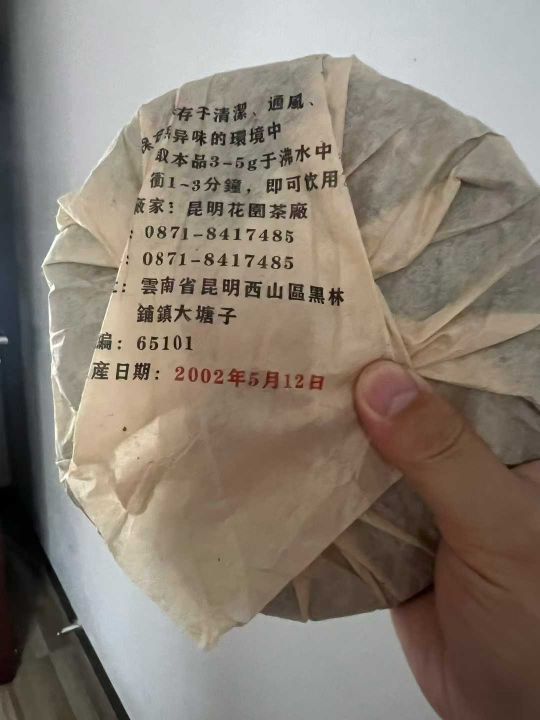 存于清潔、通風、
异味的環境中
取本品3-5g于沸水中
衝1~3分鐘，即可饮用
廠家：昆明花園茶廠
：0871-8417485
：0871-8417485
：雲南省昆明西山區黑林
鋪鎮大塘子
編：65101
産日期：2002年5月12日